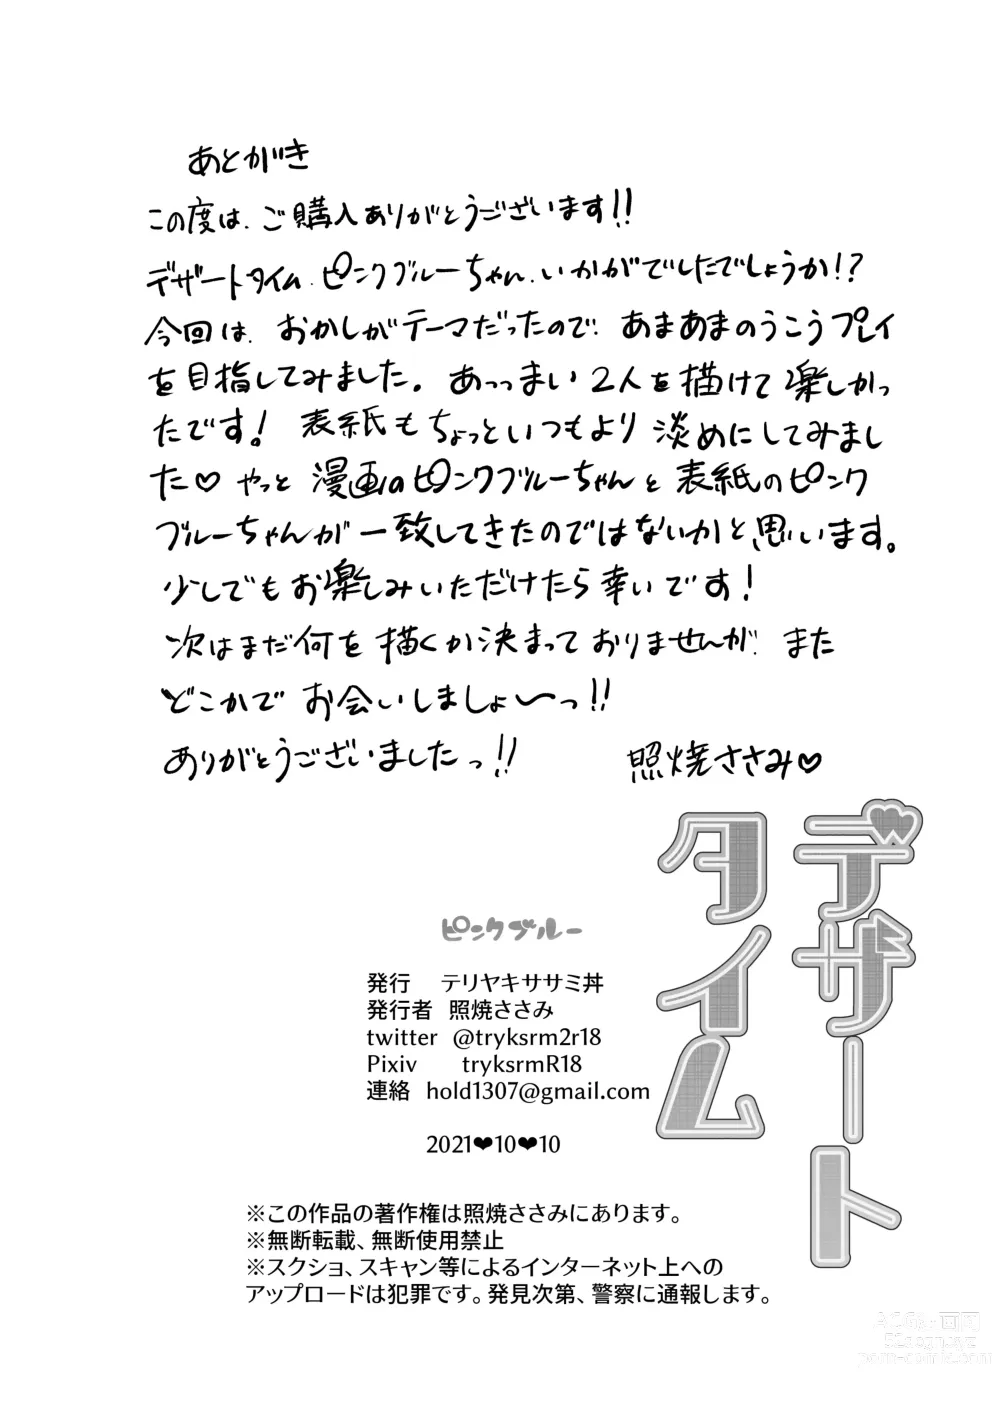 あとがき
この度は、ご購入ありがとうございます!!
デザートタイム、ピンクブルーちゃん、いかがでしたでしょうか!?
今回は、おかしがテーマだったので、あまあまのうこうプレイ
を目指してみました。あっっまい2人を描けて楽しかっ
たです!表紙もちょっといつもより淡めにしてみまし
た♡やっと漫画のピンクブルーちゃんと表紙のピンク
ブルーちゃんが一致してきたのではないかと思います。
少しでもお楽しみいただけたら幸いです!
次はまだ何を描くか決まっておりませんが、また
どこかでお会いしましょ〜っ!!
ありがとうございましたっ!! 照焼ささみ♡
デザート
タイム
ピンクブルー
発行 テリヤキササミ丼
発行者 照焼ささみ
twitter @tryksrm2r18
Pixiv tryksrmR18
連絡 hold1307@gmail.com
2021❤10❤10
※この作品の著作権は照焼ささみにあります。
※無断転載、無断使用禁止
※スクショ、スキャン等によるインターネット上への
アップロードは犯罪です。発見次第、警察に通報します。
porn-comic.com